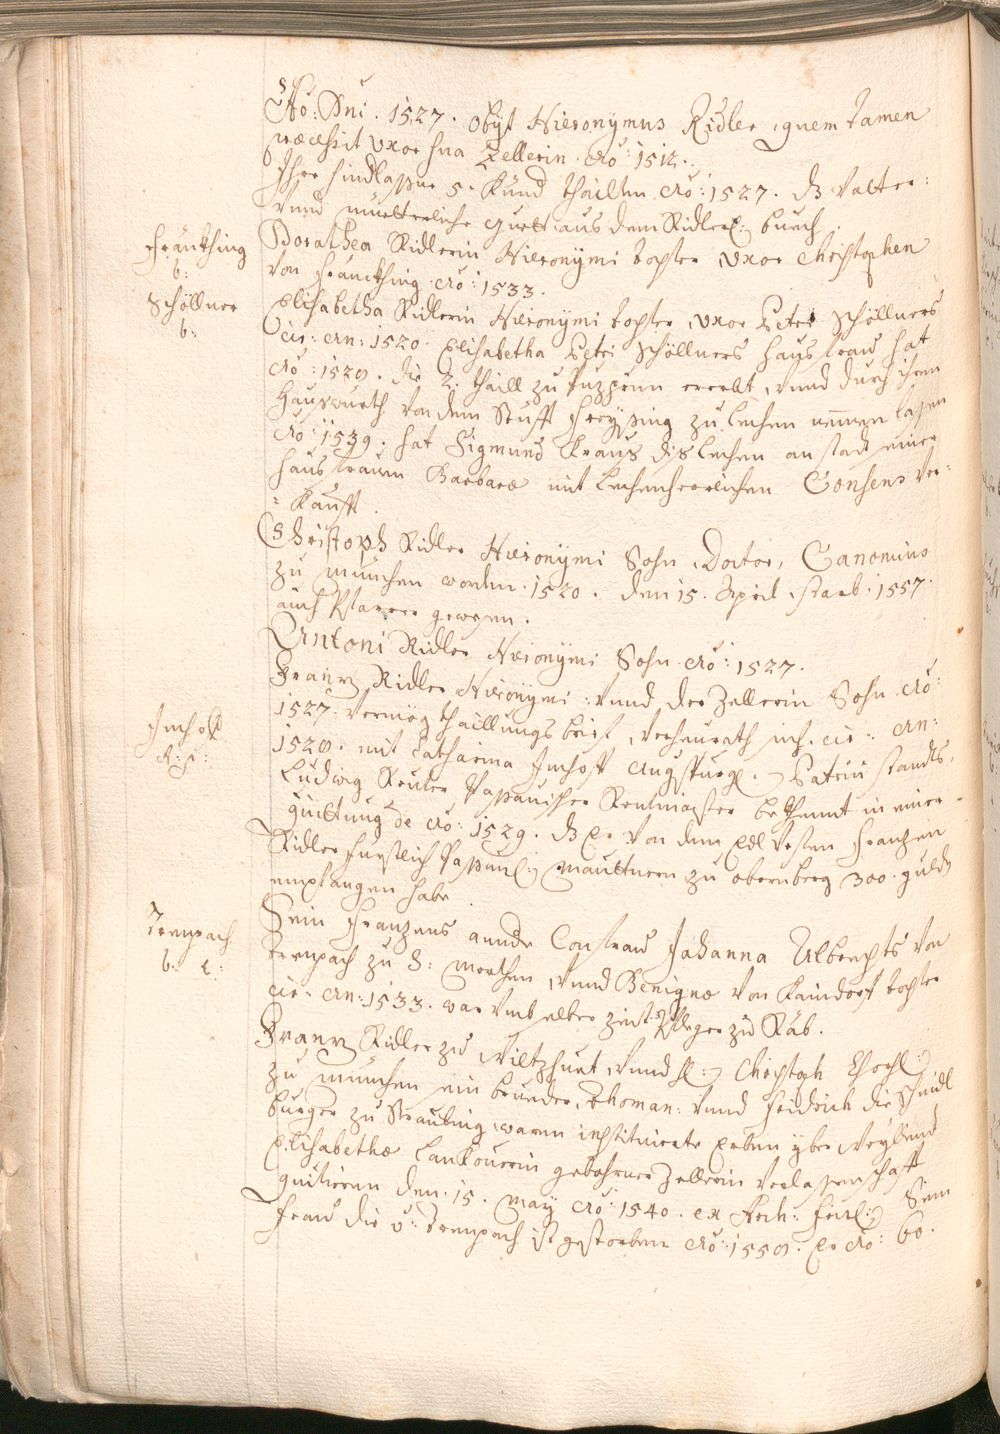 Ao: Dni. 1527. obijt Hieronymus Ridler, quem tamen
præcessit uxor sua Zellerin. Ao: 1512.
Ihre hindlaßne 5. Kind thaillen Ao: 1527. dz Vatter:
vnnd müetterliche guett aus dem Ridler: buech.
Fränkhing
b:
Dorathea Ridlerin Hieronymi tochter uxor Christophen
von Fränckhing Ao: 1533.
Schöllner
b:
Elisabetha Ridlerin Hieronymi tochter, uxor Petri Schöllners
cir: an: 1520. Elisabetha Petri Schöllners haus fraw hat
Ao: 1529. die 2. thaill zu Puzprun ererbt, vnnd durch ihren
Hauswürth von dem Stüfft Freysing zu Lechen nemmen laßen
Ao: 1539. hat Sigmund Kraus dis Lechen an statt seiner
haus frauen Barbaræ mit Lechenherrlichen Consens ver:
=kaufft.
Christoph Ridler Hieronymi Sohn, Doctor, Canonicus
zu München worden. 1520. den 15. April, starb. 1557.
auch Pfarrer gewesen.
Antoni Ridler Hieronymi Sohn Ao: 1527.
Franz Ridler Hieronymi: vnnd der Zellerin Sohn Ao:
1527. vermög thaillungs brief, verheurath sich. cir: an:
Imhoff
A: P:
1529. mit Catharina Imhoff Augspurg: Patricii standts,
Ludwig Reutter Paßauischer Rentmaister bekhennt in einer
quittung de Ao: 1529. dz Er von dem Edl Vesten Franzen
Ridler fürstlich Paßau: Mauttnern zu obernberg 300. guld
empfangen habe.
Trenpach
b: L:
Sein Franzens annder Confraw Johanna Albrechts von
Trenpach zu S: Marthen, vnnd Benignæ von Raindorf tochter
cir: an: 1533. war vmb selbe zeit Pfleger zu Ráb.
Franz Ridler zu Wiltzhuet, vnnd H: Christoph Chorh:
zu München sein brueder, Thoman: vnnd Fridrich die Schmidl
burger zu Straubing, waren instituierte Erben yber weyllend
Elisabethæ Lankouerin gebohrne Zellerin Verlaßenschafft
quittieren den. 15. May Ao: 1540. ex Arch: Sein
Fraw die v: Trenpach ist gestorben Ao: 1559. Er Ao: 60.